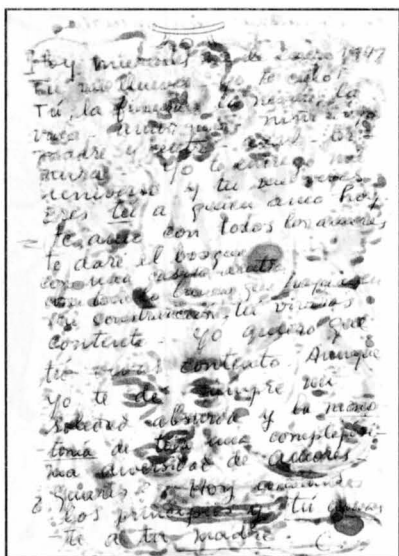 Hoy miercoles 22 de enero 1947
Tu me llueves - yo te cielo
Tú, la finura, la niñez, la
vida - amor mío - niño - viejo
madre y centro - azul -
Yo te entrego mi
universo y tu me vives
Eres tú a quien amo hoy
= te amo con todos los amores
te daré el bosque
con una casita adentro
con todo lo bueno que haya en
mi construcción, tú vivirás
contento - yo quiero que
tú vivas contento. Aunque
yo te dé siempre mi
soledad absurda y la mono-
tonía de una complejísi-
ma diversidad de amores -
Quieres? Hoy amando
los principios y tú amas
te a tu madre.